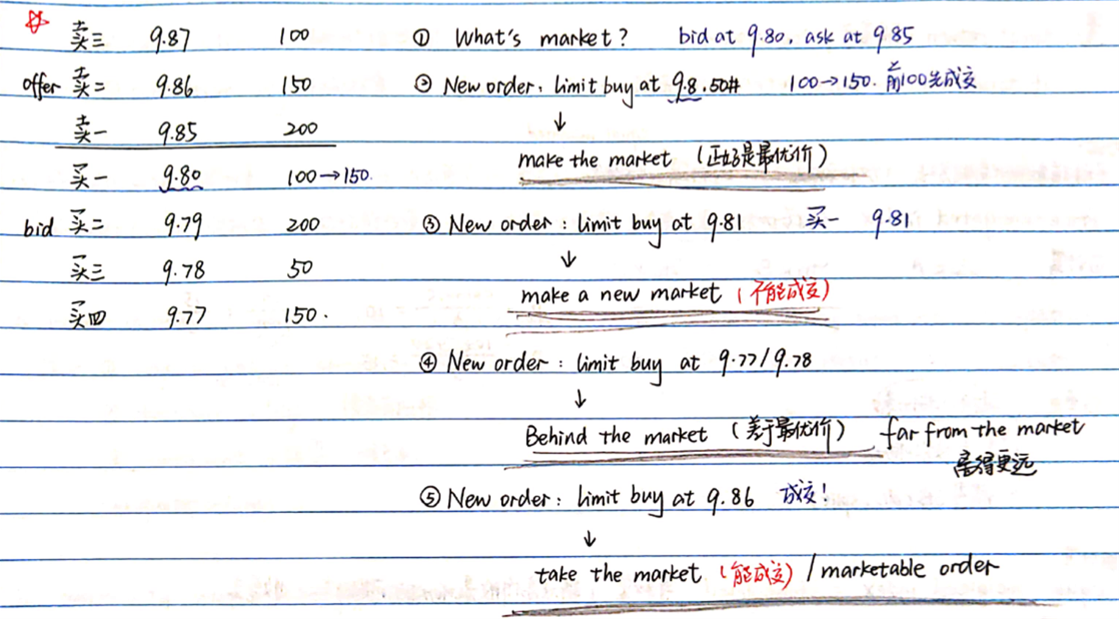 卖三 9.87 100 ① What's market? bid at 9.80, ask at 9.85
offer 卖二 9.86 150 ② New order, limit buy at 9.8, 50股 100→150. 前100先成交
卖一 9.85 200 ↓
make the market (正好是最优价)
买一 9.80 100→150.
bid 买二 9.79 200 ③ New order: limit buy at 9.81 买一 9.81
买三 9.78 50 ↓
买四 9.77 150. make a new market (不能成交)
④ New order: limit buy at 9.77/9.78
↓
Behind the market (差于最优价) far from the market
离得更远
⑤ New order: limit buy at 9.86 成交!
↓
take the market (能成交) / marketable order